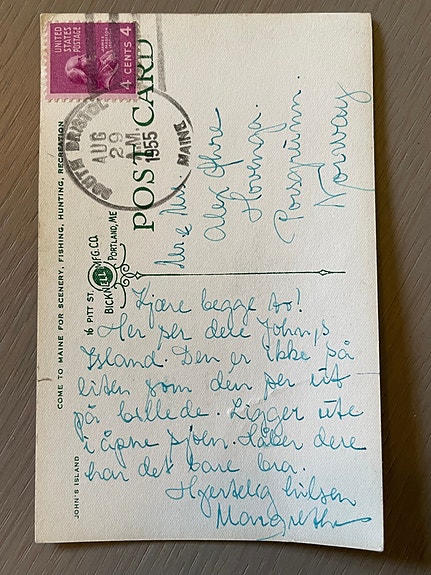 UNITED
STATES
POSTAGE
4 CENTS 4
SOUTH BRISTOL
AUG
29
A.M.
1955
MAINE
POST CARD
COME TO MAINE FOR SCENERY, FISHING, HUNTING, RECREATION
16 PITT ST. BICKNELL MFG. CO. PORTLAND, ME
JOHN'S ISLAND
Mr. & Mrs.
Alex
Hovenga.
Porsgrunn.
Norway
Kjære begge to!
Her ser dere John's
Island. Den er ikke så
liten som den ser ut
på billede. Ligger ute
i åpne sjøen. Håber dere
har det bare bra.
Hjertelig hilsen
Margrethe